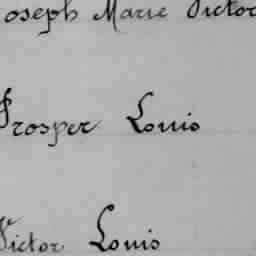 Joseph Marie Victor
Prosper Louis
Victor Louis